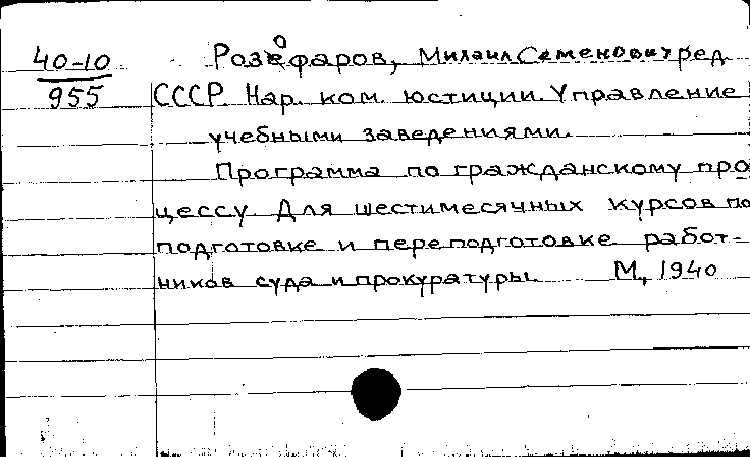 40-10
955
Розофаров, Михаил Семенович ред.
СССР Нар. ком. юстиции. Управление
учебными заведениями.
Программа по гражданскому про
цессу. Для шестимесячных курсов по
подготовке и переподготовке работ-
ников суда и прокуратуры. М., 1940